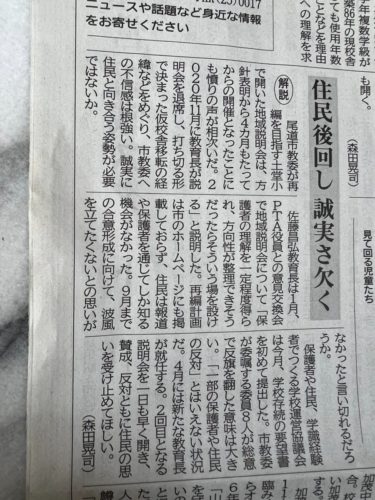 (25)0017
ニュースや話題など身近な情報
をお寄せください
年複数学級が
でも使用年数
ことなどを理由
築86年の現校舎
への理解を求
も開く。
(森田晃司)
見て回る児童たち
住民後回し 誠実さ欠く
解説
尾道市教委が再
編を目指す土堂小
で開いた地域説明会は、方
針表明から4カ月もたって
からの開催となったことに
も憤りの声が相次いだ。2
020年11月に教育長が説
明会を退席し、打ち切る形
で決まった仮校舎移転の経
緯などをめぐり、市教委へ
の不信感は根強い。誠実に
住民と向き合う姿勢が必要
ではないか。
佐藤昌弘教育長は1月、
PTA役員との意見交換会
で地域説明会について「保
護者の理解を一定程度得ら
れ、方向性が整理できそう
だったらそういう場を設け
る」と説明した。再編計画
は市のホームページにも掲
載しておらず、住民は報道
や保護者を通じてしか知る
機会がなかった。9月まで
の合意形成に向けて、波風
を立てたくないとの思いが
なかったと言い切れるだろ
うか。
保護者や住民、学識経験
者でつくる学校運営協議会
は今月、学校存続の要望書
を初めて提出した。市教委
が委嘱する委員8人が総意
で反旗を翻した意味は大き
い。「一部の保護者や住民
の反対」とはいえない状況
だ。4月には新たな教育長
が就任する。2回目となる
説明会を一日も早く開き、
賛成、反対ともに住民の思
いを受け止めてほしい。
(森田晃司)